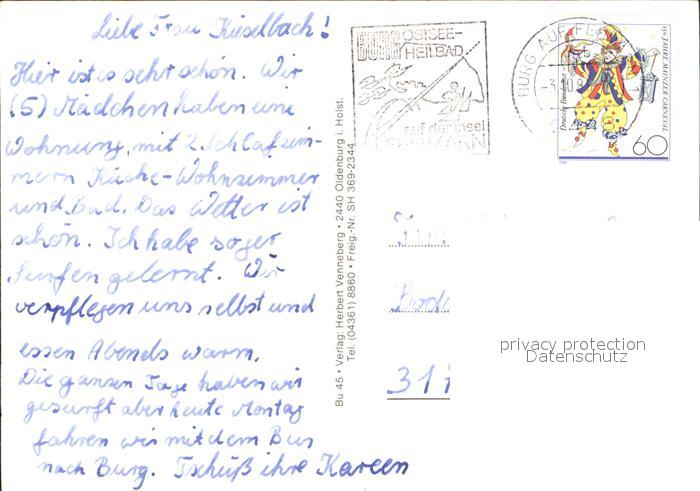 Liebe Frau Kieselbach!
Hier ist es sehr schön. Wir
(5) Mädchen haben eine
Wohnung, mit 2 Schlafzim-
mern Küche-Wohnzimmer
und Bad. Das Wetter ist
schön. Ich habe sogar
Surfen gelernt. Wir
verpflegen uns selbst und
essen Abends warm.
Die ganzen Tage haben wir
gesurft aber heute Montag
fahren wir mit dem Bus
nach Burg. Tschüß ihre Kareen
Bu 45 • Verlag: Herbert Venneberg • 2440 Oldenburg i. Holst.
Tel. (04361) 8860 • Freig.-Nr. SH 369-2344
BURG OSTSEE-
HEILBAD
auf der Insel
FEHMARN
BURG AUF FE
Deutsche Bundespost
150 JAHRE MAINZER CARNEVAL
60
privacy protection
Datenschutz